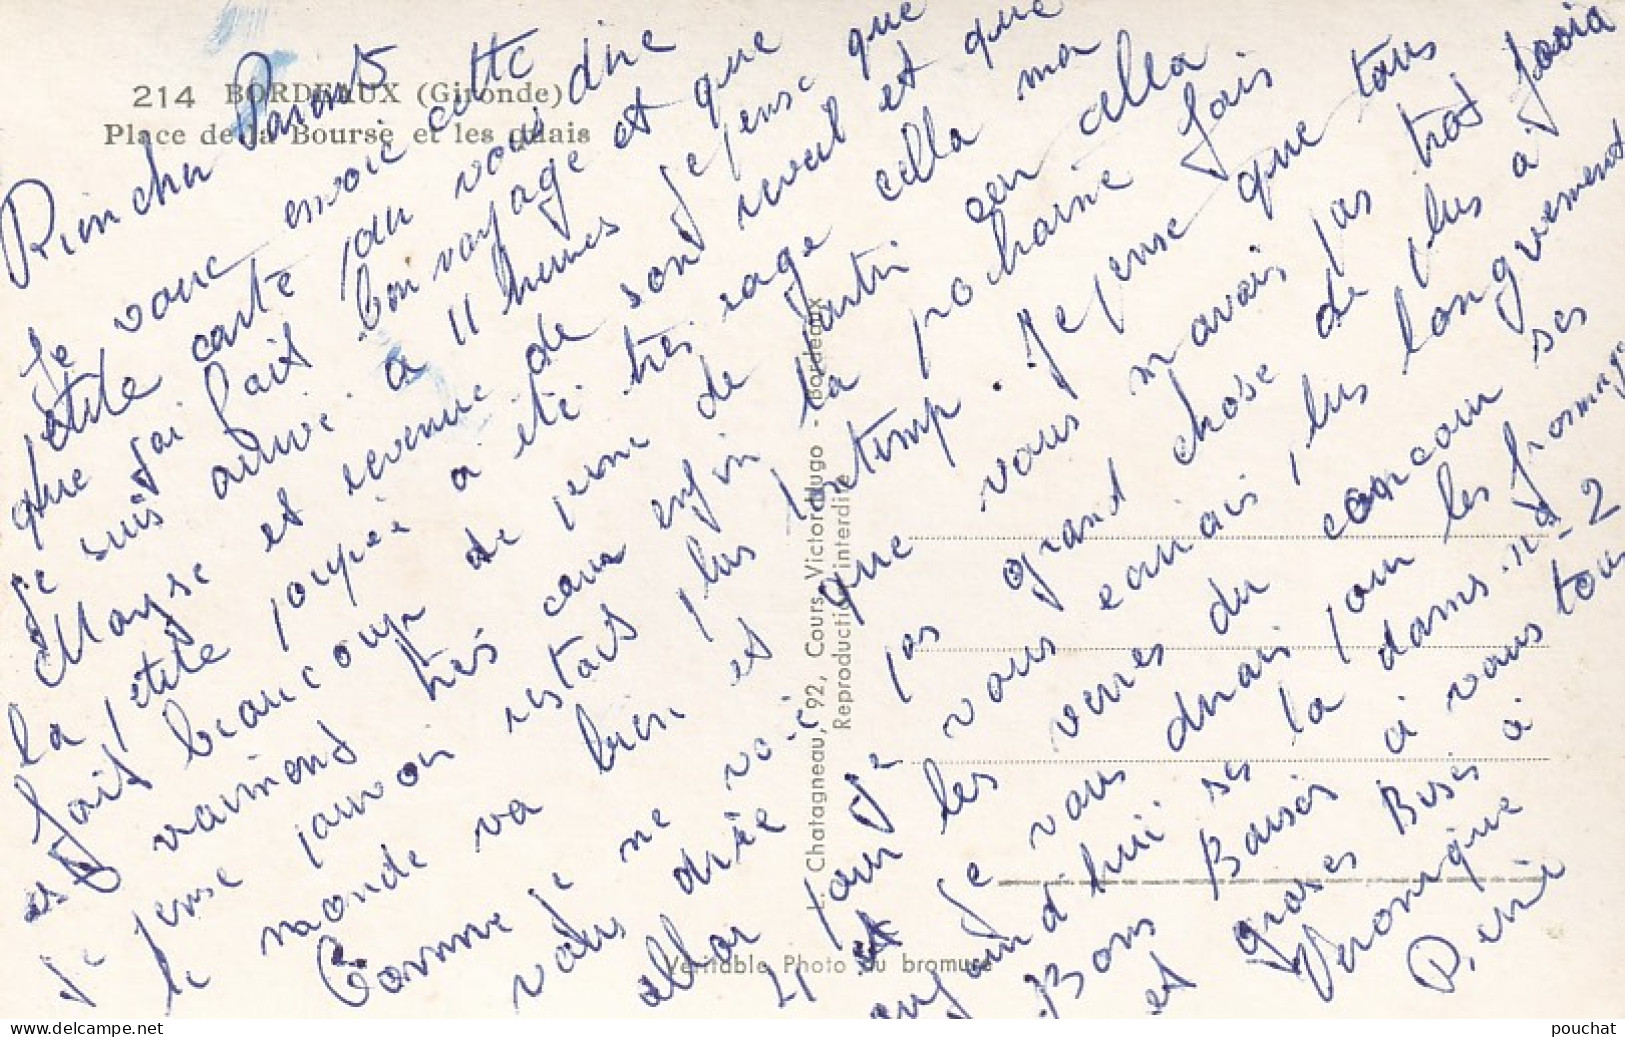 214 BORDEAUX (Gironde)
Place de la Bourse et les quais
Bien cher Parents
Je vous envoie cette
petite carte pour vous dire
que j'ai fait bon voyage et que
je suis arrivé a 11 heures je pense que
Maryse et revenue de son et que
la petite poupée a été très sage cella ma
fait beaucoup de peine de partir cen cella
et vraiment très cour enfin la prochaine fois
je pense pouvoir restait plus lontemp. Je pense que tous
le monde va bien et que vous m'avais pas trop
Comme je ne pas grand chose de plus à
vous vous ecrirais plus longuement
pour les verres du concour ses
et je vous dirais pour les
aujourd'hui ses la dams n-2
Bons Baisers à vous tous
et grosses Bises à
Veronique
Pierre
L. Chatagneau, 92, Cours Victor-Hugo - Bordeaux
Reproduction interdite
Véritable Photo au bromure
www.delcampe.net
pouchat